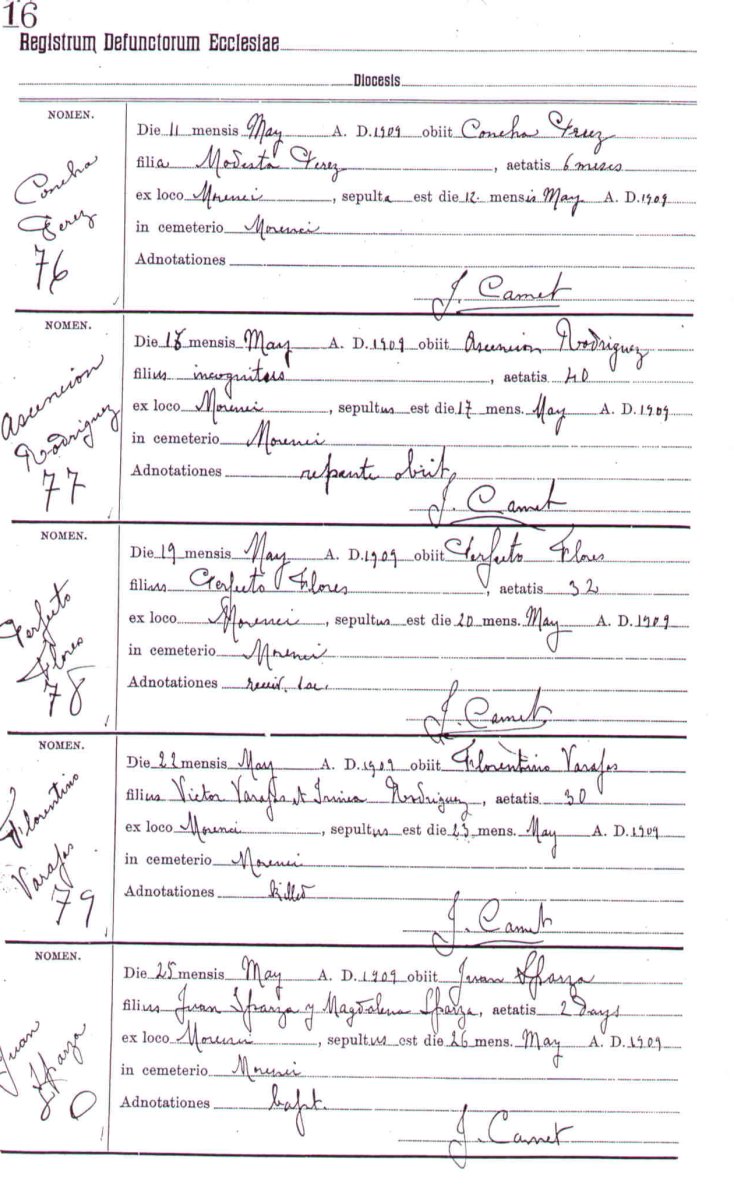 16
Registrum Defunctorum Ecclesiae
Diocesis
NOMEN.
Concha
Perez
76
Die 11 mensis May A. D. 1909 obiit Concha Perez
filia Modesta Perez, aetatis 6 meses
ex loco Morenci, sepulta est die 12 mensis May A. D. 1909
in cemeterio Morenci
Adnotationes
J. Camet
NOMEN.
Ascencion
Rodriguez
77
Die mensis May A. D. 1909 obiit Ascencion Rodriguez
filius, aetatis 40
ex loco Morenci, sepultus est die 17 mens. May A. D. 1909
in cemeterio Morenci
Adnotationes repante obiit,
J. Camet
NOMEN.
Perfecto
Flores
78
Die 19 mensis May A. D. 1909 obiit Perfecto Flores
filius Perfecto Flores, aetatis 32
ex loco Morenci, sepultus est die 20 mens. May A. D. 1909
in cemeterio Morenci
Adnotationes
J. Camet
NOMEN.
Florentino
Varajas
79
Die 22 mensis May A. D. 1909 obiit Florentino Varajas
filius Victor Varajas et Rodriguez, aetatis 30
ex loco Morenci, sepultus est die 23 mens. May A. D. 1909
in cemeterio Morenci
Adnotationes killed
J. Camet
NOMEN.
Juan
Sparza
80
Die 25 mensis May A. D. 1909 obiit Juan Sparza
filius Juan Sparza y Magdalena Sparza, aetatis 2 days
ex loco Morenci, sepultus est die 26 mens. May A. D. 1909
in cemeterio Morenci
Adnotationes bapt.
J. Camet